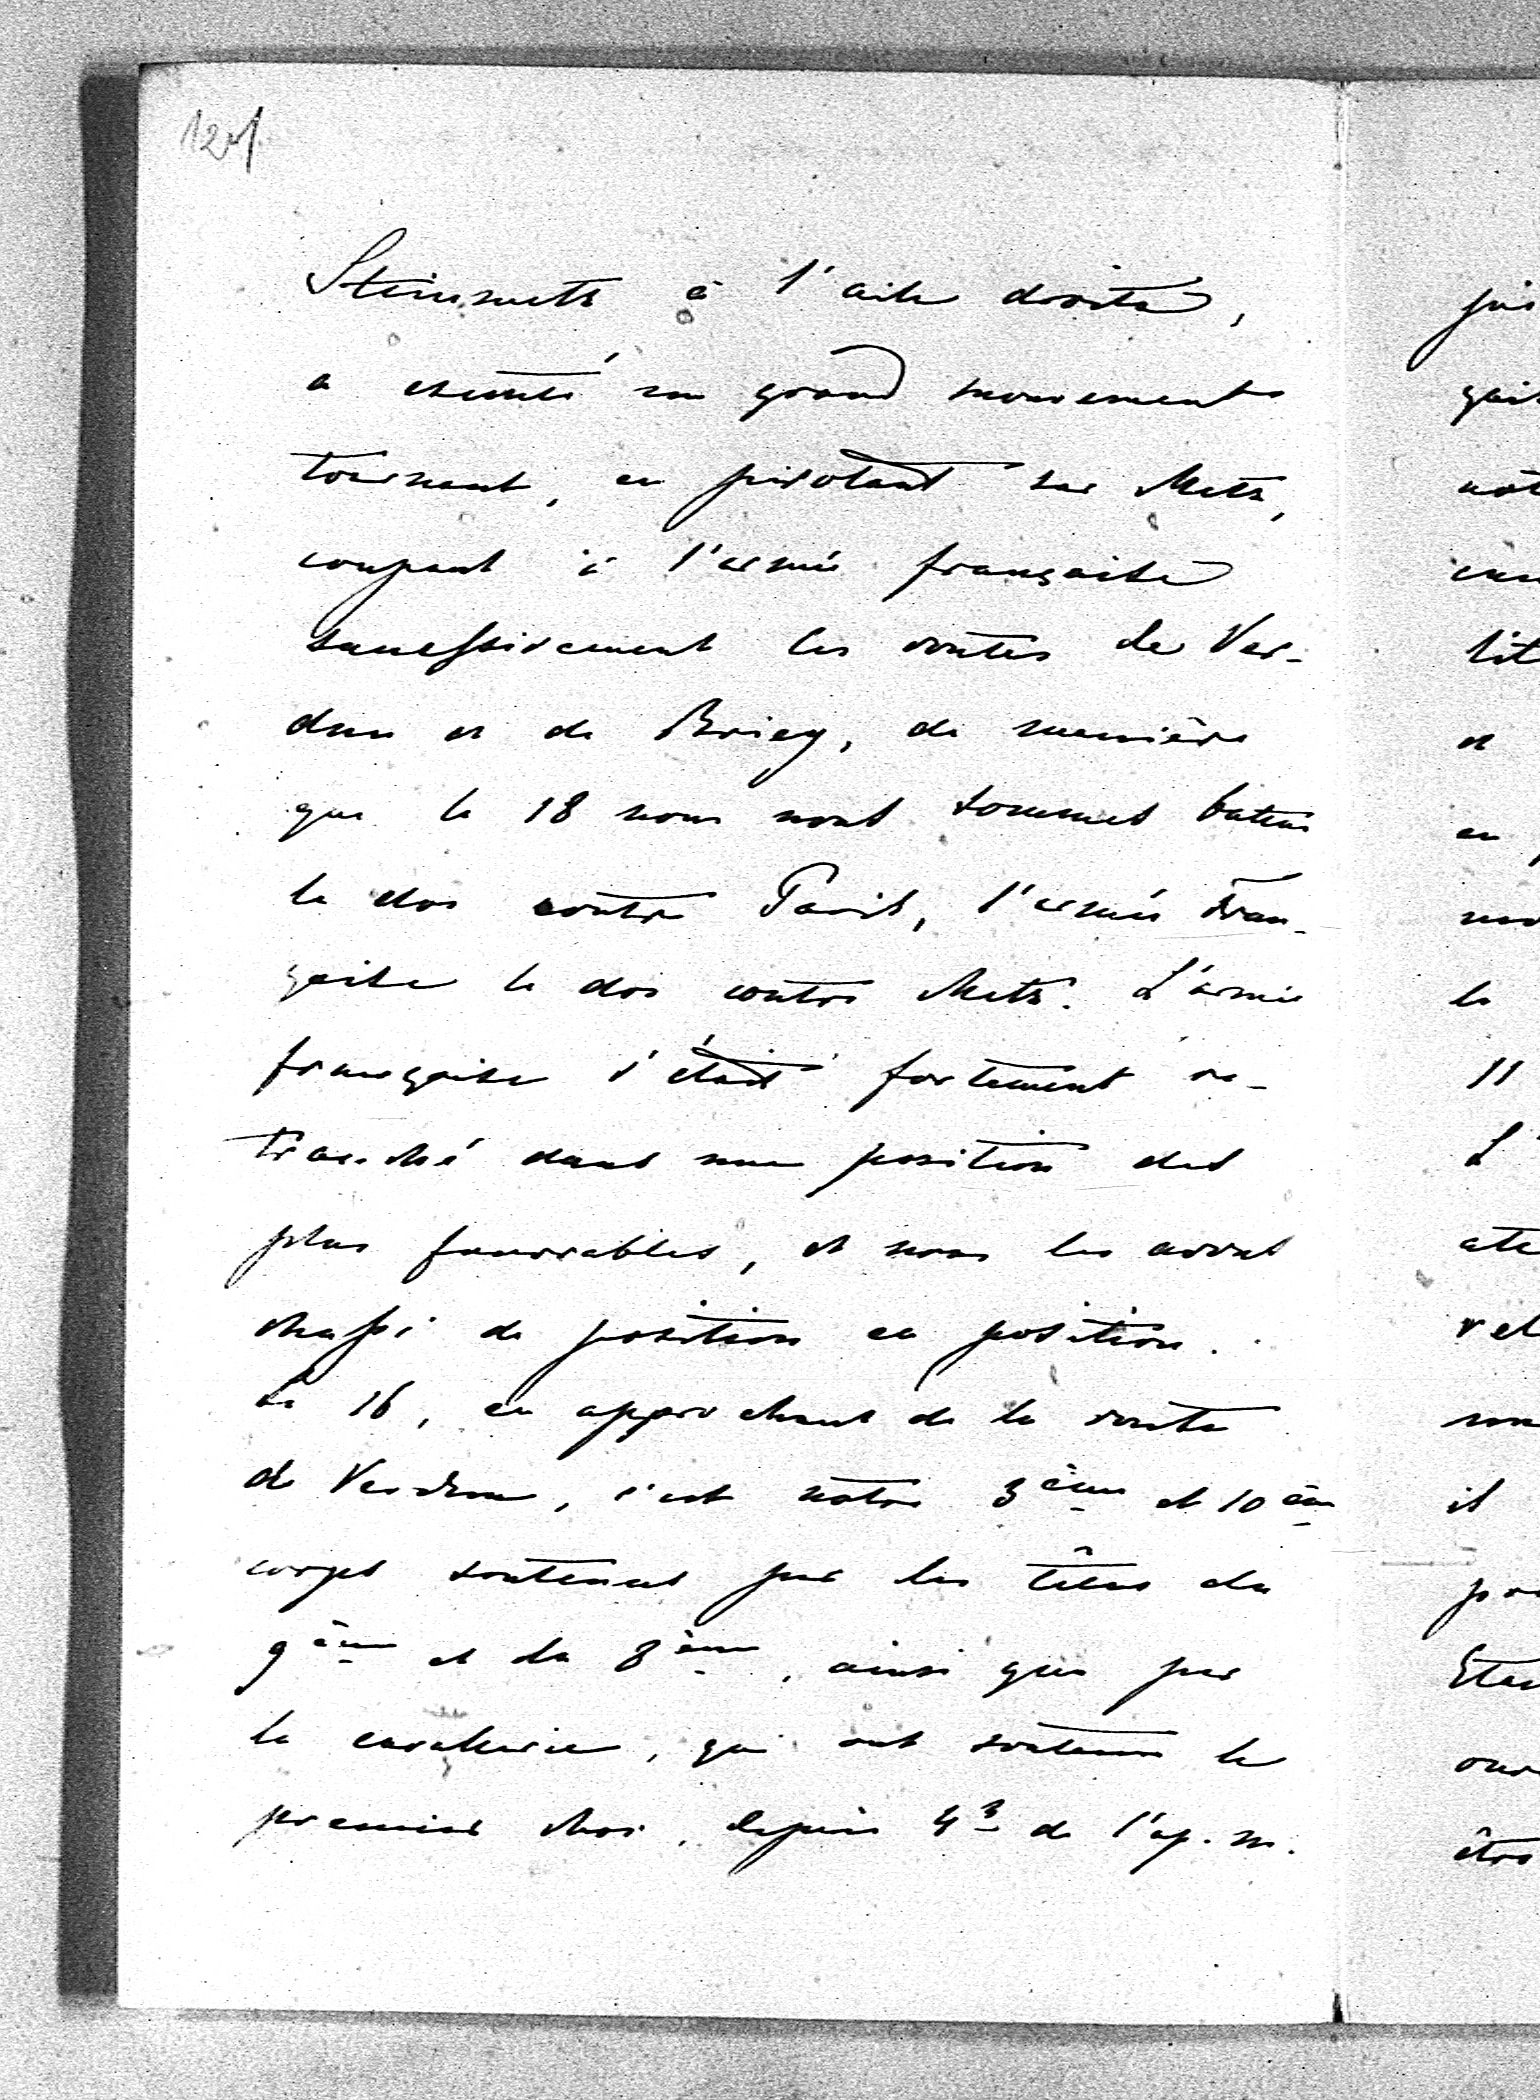 Steinmetz à l'aile droite,
a executé un grand mouvement
tournant, en pivotant sur Metz,
coupant à l'armée française
successivement les routes de Ver-
dun et de Briey, de manière
que le 18 nous nous sommes battus
le dos contre Paris, l'armée fran-
çaise le dos contre Metz. L'armée
française s'était fortement re-
tranché dans une position des
plus favorables, et nous les avons
chassé de position en position.
Le 16, en approchant de la route
de Verdun, c'est notre 3ème et 10ème
corps soutenus par les têtes du
9ème et du 8ème, ainsi que par
la cavalerie, qui ont soutenu le
premier choc, depuis 4h de l'ap. m.